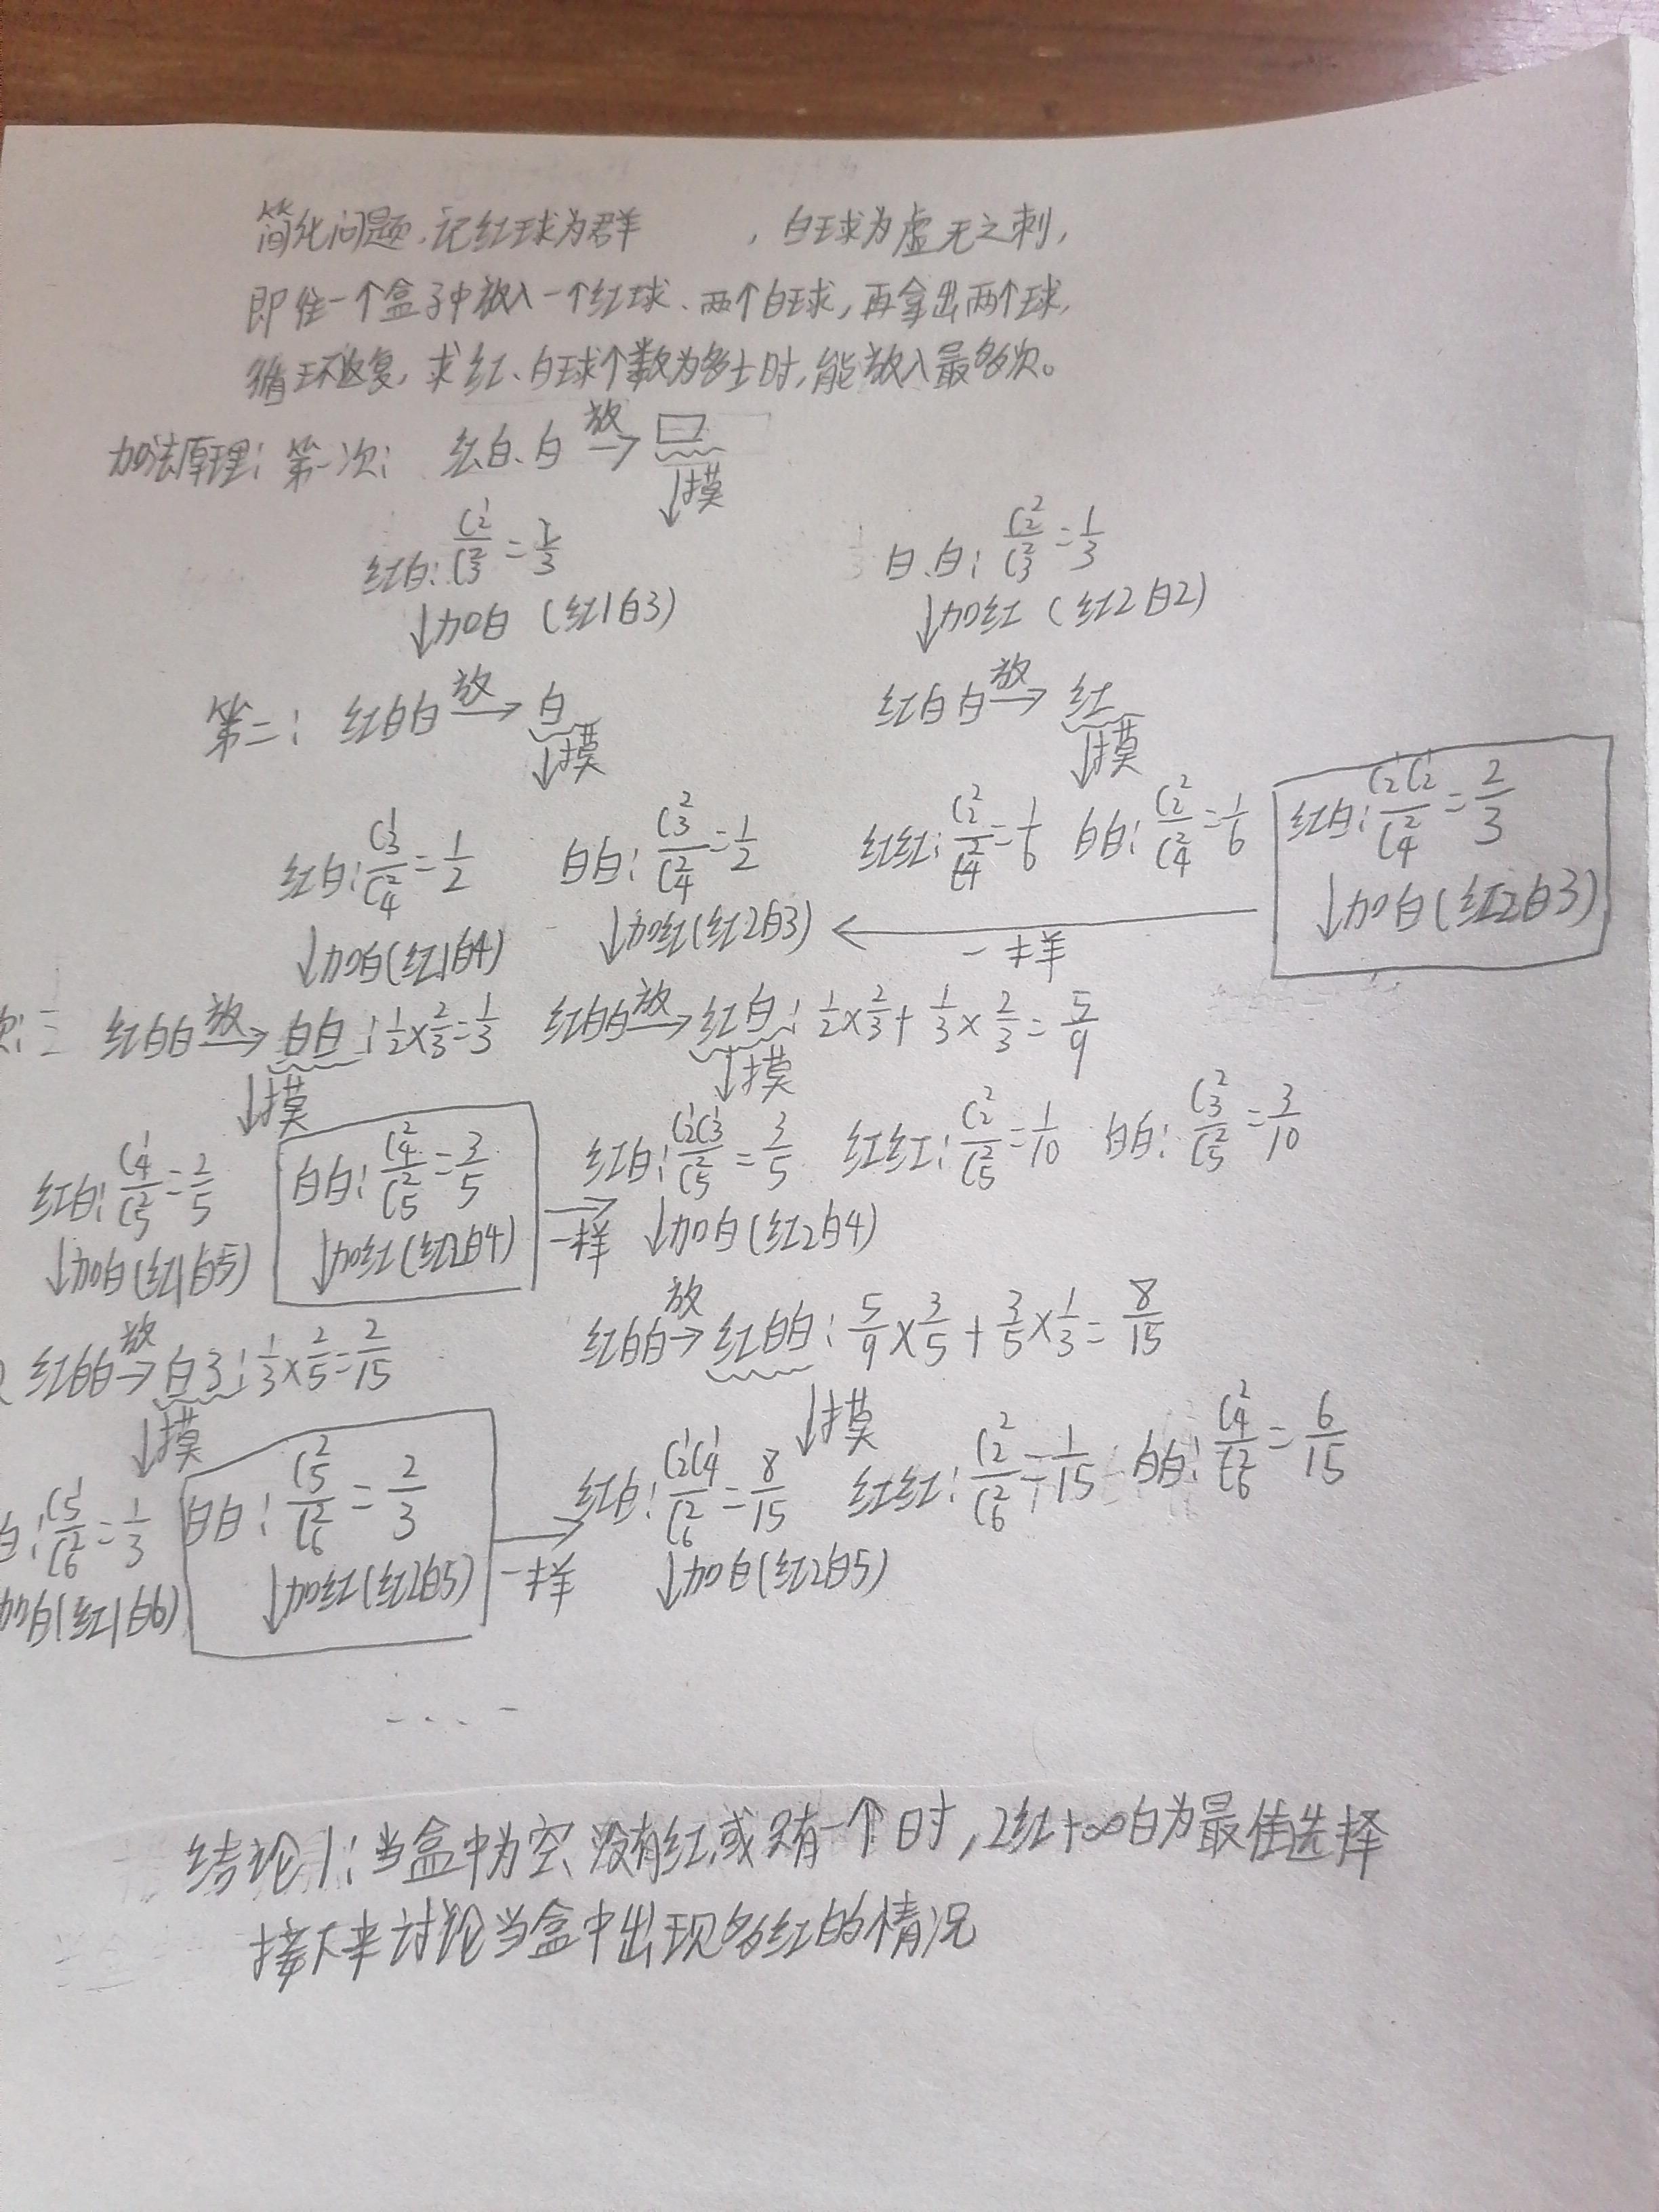 简化问题,记红球为群 , 白球为虚无之刺,
即往一个盒子中放入一个红球、两个白球,再拿出两个球,
循环返复,求红、白球个数为多士时,能放入最多次。
加法原理: 第一次: 红、白、白 放→ □
↓摸
红白: C₂¹/C₃² = 2/3 白、白: C₂²/C₃² = 1/3
↓加白 (红1白3) ↓加红 (红2白2)
第二: 红白白 放→ 白 红白白 放→ 红
↓摸 ↓摸
红白: C₃¹/C₄² = 1/2 白白: C₃²/C₄² = 1/2 红红: C₂²/C₄² = 1/6 白白: C₂²/C₄² = 1/6 红白: C₂¹C₂¹/C₄² = 2/3
↓加白(红1白4) ↓加红(红2白3) ← 一样 ↓加白(红2白3)
次:三 红白白 放→ 白白: 1/2×2/3=1/3 红白白 放→ 红白: 1/2×2/3+1/3×2/3=5/9
↓摸 ↓摸
红白: C₄¹/C₅² = 2/5 白白: C₄²/C₅² = 3/5 红白: C₂¹C₃¹/C₅² = 3/5 红红: C₂²/C₅² = 1/10 白白: C₃²/C₅² = 3/10
↓加白(红1白5) ↓加红(红2白4) → 一样 ↓加白(红2白4)
红白白 放→ 白3: 1/3×2/5=2/15 红白白 放→ 红白白: 5/9×3/5+3/5×1/3=8/15
↓摸 ↓摸
白: C₅¹/C₆² = 1/3 白白: C₅²/C₆² = 2/3 红白: C₂¹C₄¹/C₆² = 8/15 红红: C₂²/C₆² = 1/15 白白: C₄²/C₆² = 6/15
加白(红1白6) ↓加红(红2白5) → 一样 ↓加白(红2白5)
....
结论1: 当盒中为空、没有红,或只有一个时, 2红+∞白为最佳选择
接下来讨论当盒中出现多红的情况